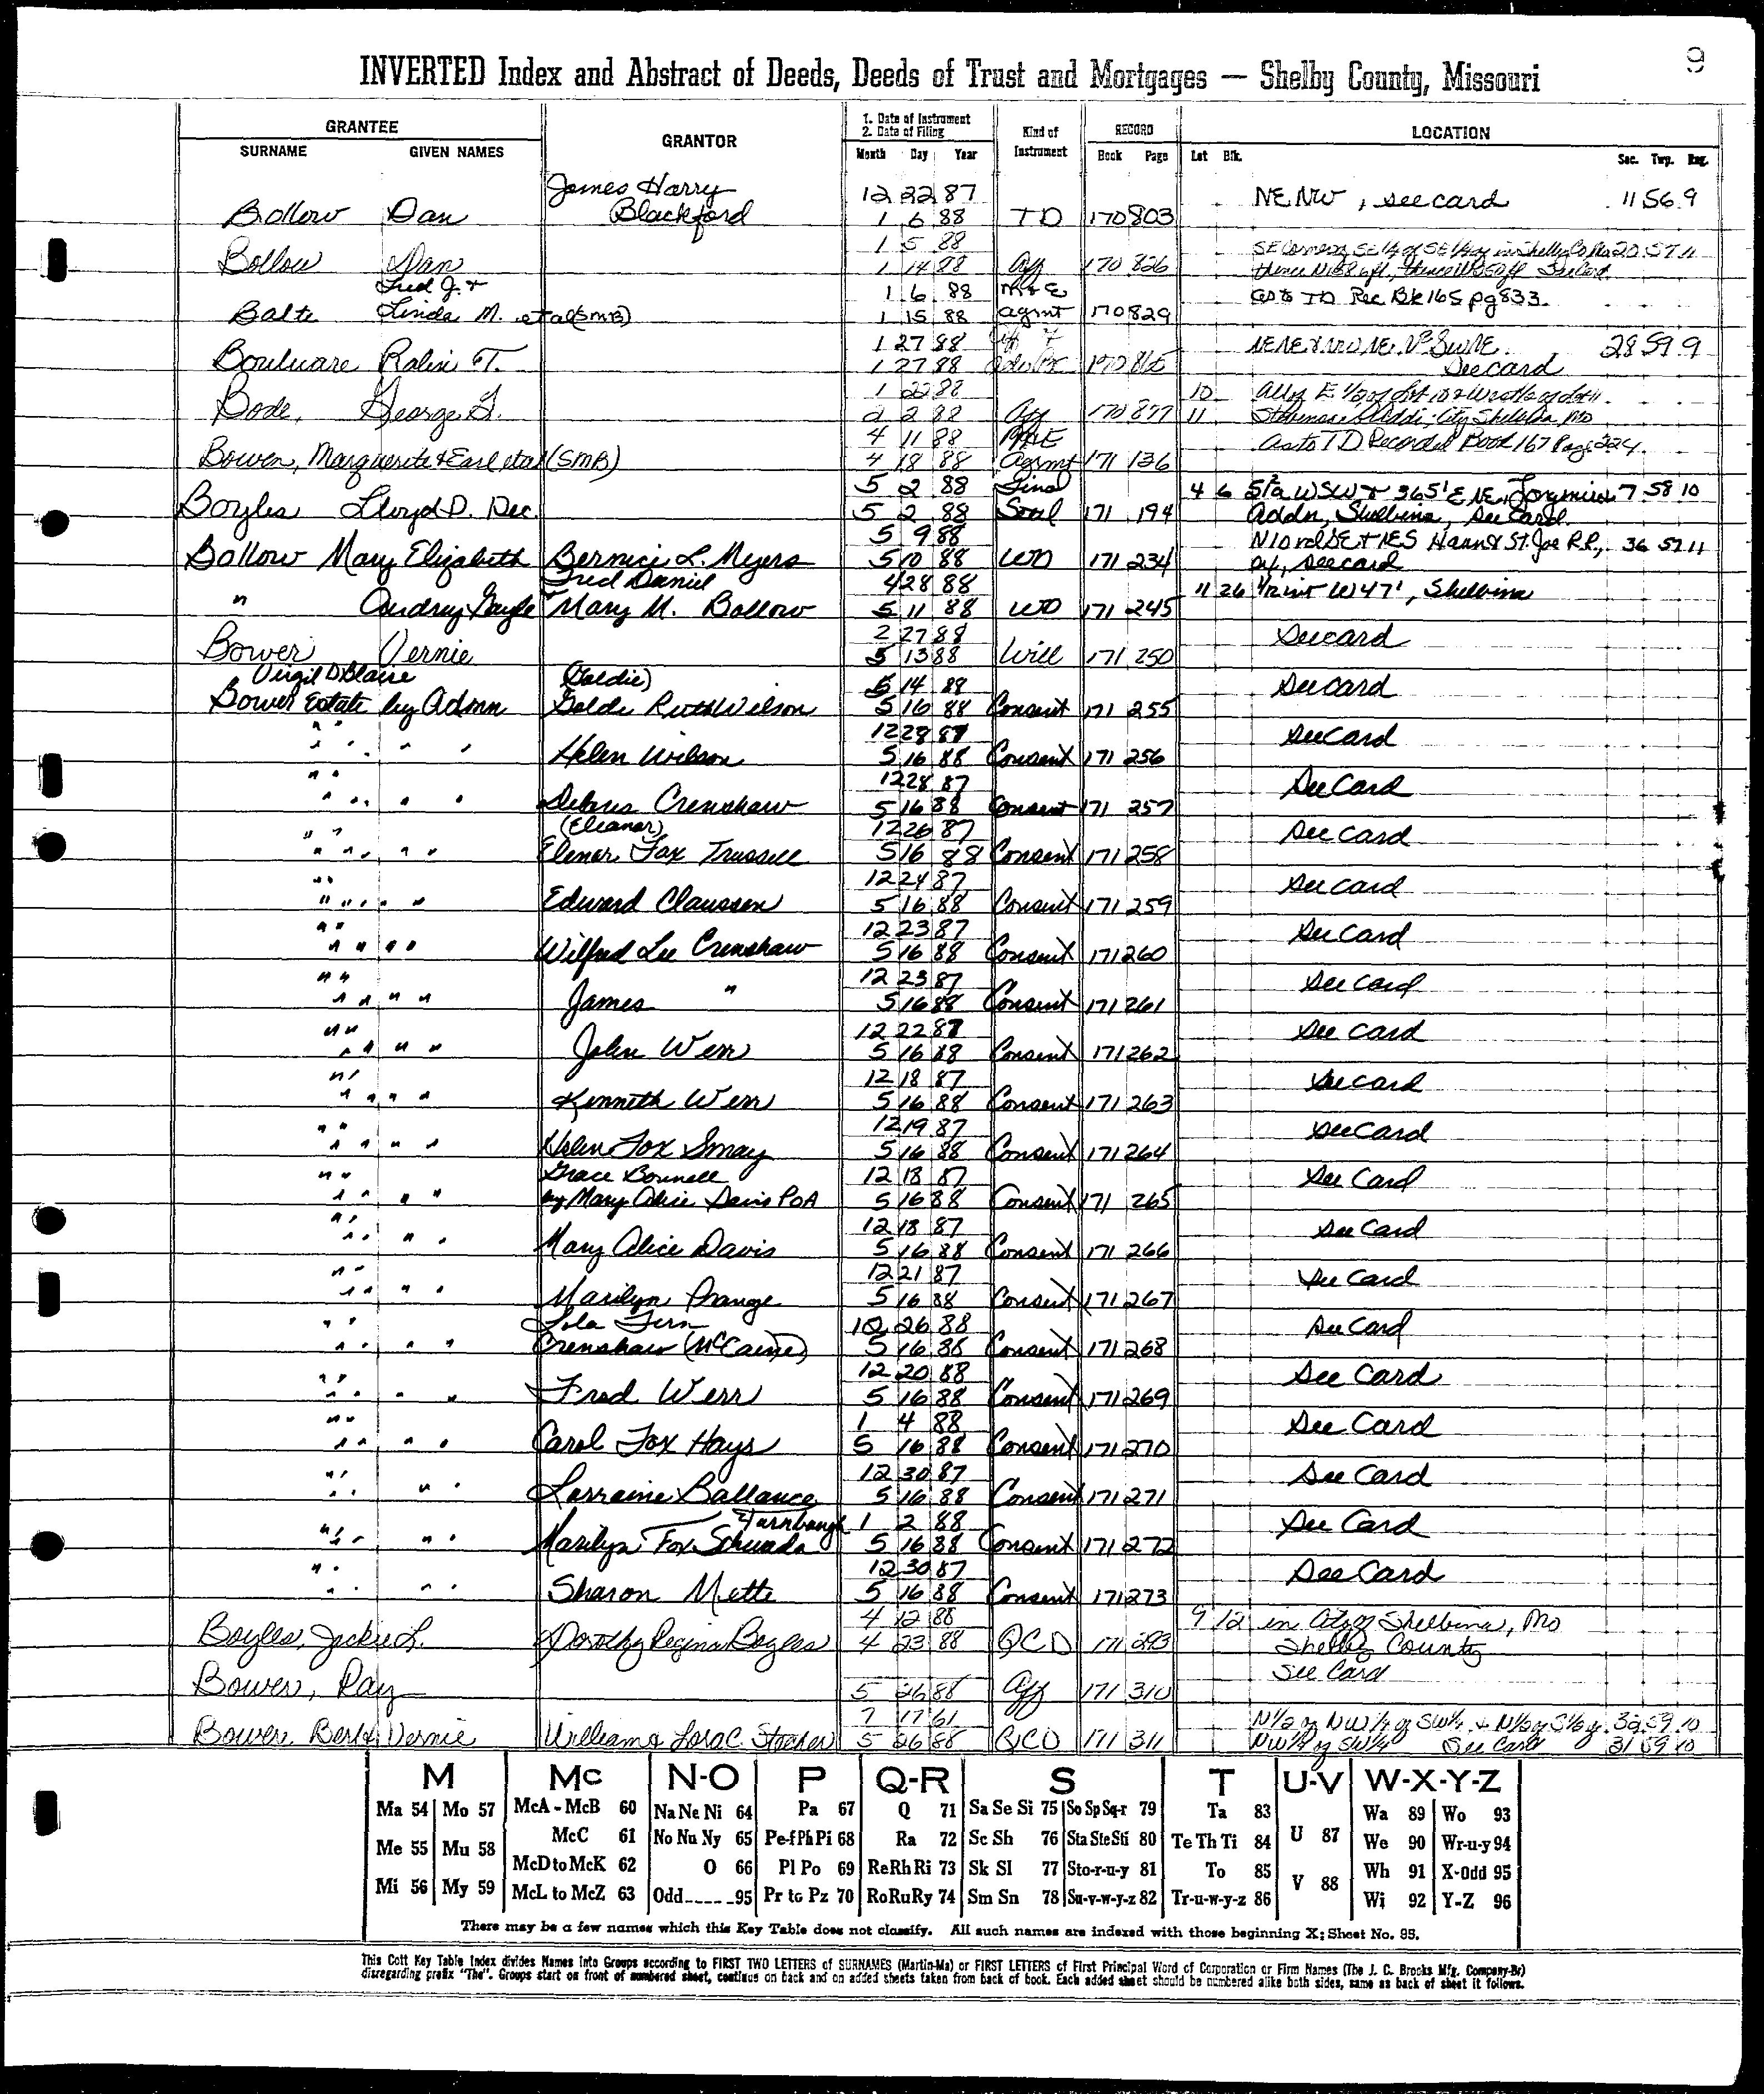 9
INVERTED Index and Abstract of Deeds, Deeds of Trust and Mortgages — Shelby County, Missouri
GRANTEE GRANTOR 1. Date of Instrument Kind of Instrument RECORD LOCATION
2. Date of Filing
SURNAME GIVEN NAMES Month Day Year Book Page Lot Blk. Sec. Twp. Rng.
James Harry 12 22 87 NE NW, see card 11 56 9
Bollow Dan Blackford 1 6 88 TD 170 803
1 5 88 20 57 11
Bollow Dan 1 14 88 Aff 170 826
Fred J. + 1 6 88 M&E as to TD Rec Bk 165 pg 833
Balte Linda M. etal (SMB) 1 15 88 agmt 170 829
1 27 88 28 59 9
Boulware Robin T. 1 27 88 170 See card
1 22 88 10
Bode, George 2 2 88 Aff 170 877 11
4 11 88 As to TD Recorded Book 167 Page 224
Bowen, Marguerite & Earl etal (SMB) 4 18 88 Agrmt 171 136
5 2 88 Final 4 6 7 58 10
Boyles Lloyd D. Dec. 5 2 88 171 194 Addn, Shelbina, See Card
5 9 88 Hann & St. Joe R.R., 36 57 11
Bollow Mary Elizabeth Bernice L. Meyers 5 10 88 WD 171 234 see card
Fred Daniel 4 28 88 11 26 W 47', Shelbina
" Audrey Gayle Mary M. Bollow 5 11 88 WD 171 245
2 27 88 See card
Bower Vernie 5 13 88 Will 171 250
Virgil D Blaine (Goldie) 5 14 88 See card
Bower Estate by Admn Golde Ruth Wilson 5 16 88 Consent 171 255
12 28 87 See Card
" " " " Helen Wilson 5 16 88 Consent 171 256
12 28 87 See Card
" " " " Delores Crenshaw 5 16 88 Consent 171 257
(Eleanor) 12 26 87 See card
" " " " Elenor Fox Trussell 5 16 88 Consent 171 258
12 24 87 See card
" " " " Edward Claussen 5 16 88 Consent 171 259
12 23 87 See Card
" " " " Wilfred Lee Crenshaw 5 16 88 Consent 171 260
12 23 87 See Card
" " " " James " 5 16 88 Consent 171 261
12 22 87 See Card
" " " " John Werr 5 16 88 Consent 171 262
12 18 87 See card
" " " " Kenneth Werr 5 16 88 Consent 171 263
12 19 87 See Card
" " " " Helen Fox Smay 5 16 88 Consent 171 264
Grace Bonnell 12 18 87 See Card
" " " " by Mary Alice Davis POA 5 16 88 Consent 171 265
12 18 87 See Card
" " " " Mary Alice Davis 5 16 88 Consent 171 266
12 21 87 See Card
" " " " Marilyn Prange 5 16 88 Consent 171 267
Lola Fern 12 26 88 See Card
" " " " Crenshaw (McCaine) 5 16 88 Consent 171 268
12 20 88 See Card
" " " " Fred Werr 5 16 88 Consent 171 269
1 4 88 See Card
" " " " Carol Fox Hays 5 16 88 Consent 171 270
12 30 87 See Card
" " " " Lorraine Ballance 5 16 88 Consent 171 271
Turnbaugh 1 2 88 See Card
" " " " Marilyn Fox Schwada 5 16 88 Consent 171 272
12 30 87 See Card
" " " " Sharon Mette 5 16 88 Consent 171 273
4 12 88 9 12 in City of Shelbina, Mo
Boyles, Jackie L. Dorothy Regina Boyles 4 23 88 QCD 171 293 Shelby County
See Card
Bower, Ray 5 26 88 Aff 171 310
7 17 61 N½ of NW¼ of SW¼ & N½ of S½ of 32 59 10
Bower, Bert & Vernie William & Lora C. 5 26 88 QCD 171 311 NW¼ of SW¼ See Card 31 59 10
M Mc N-O P Q-R S T U-V W-X-Y-Z
Ma 54 Mo 57 McA - McB 60 Na Ne Ni 64 Pa 67 Q 71 Sa Se Si 75 So Sp Sq-r 79 Ta 83 U 87 Wa 89 Wo 93
Me 55 Mu 58 McC 61 No Nu Ny 65 Pe-f Ph Pi 68 Ra 72 Sc Sh 76 Sta Ste Sti 80 Te Th Ti 84 We 90 Wr-u-y 94
McD to McK 62 O 66 Pl Po 69 Re Rh Ri 73 Sk Sl 77 Sto-r-u-y 81 To 85 V 88 Wh 91 X-Odd 95
Mi 56 My 59 McL to McZ 63 Odd_____95 Pr to Pz 70 Ro Ru Ry 74 Sm Sn 78 Su-v-w-y-z 82 Tr-u-w-y-z 86 Wi 92 Y-Z 96
There may be a few names which this Key Table does not classify. All such names are indexed with those beginning X; Sheet No. 95.
This Cott Key Table Index divides Names into Groups according to FIRST TWO LETTERS of SURNAMES (Martin-Ma) or FIRST LETTERS of First Principal Word of Corporation or Firm Names (The J. C. Brooks Mfg. Company-Br)
disregarding prefix "The". Groups start on front of numbered sheet, continue on back and on added sheets taken from back of book. Each added sheet should be numbered alike both sides, same as back of sheet it follows.